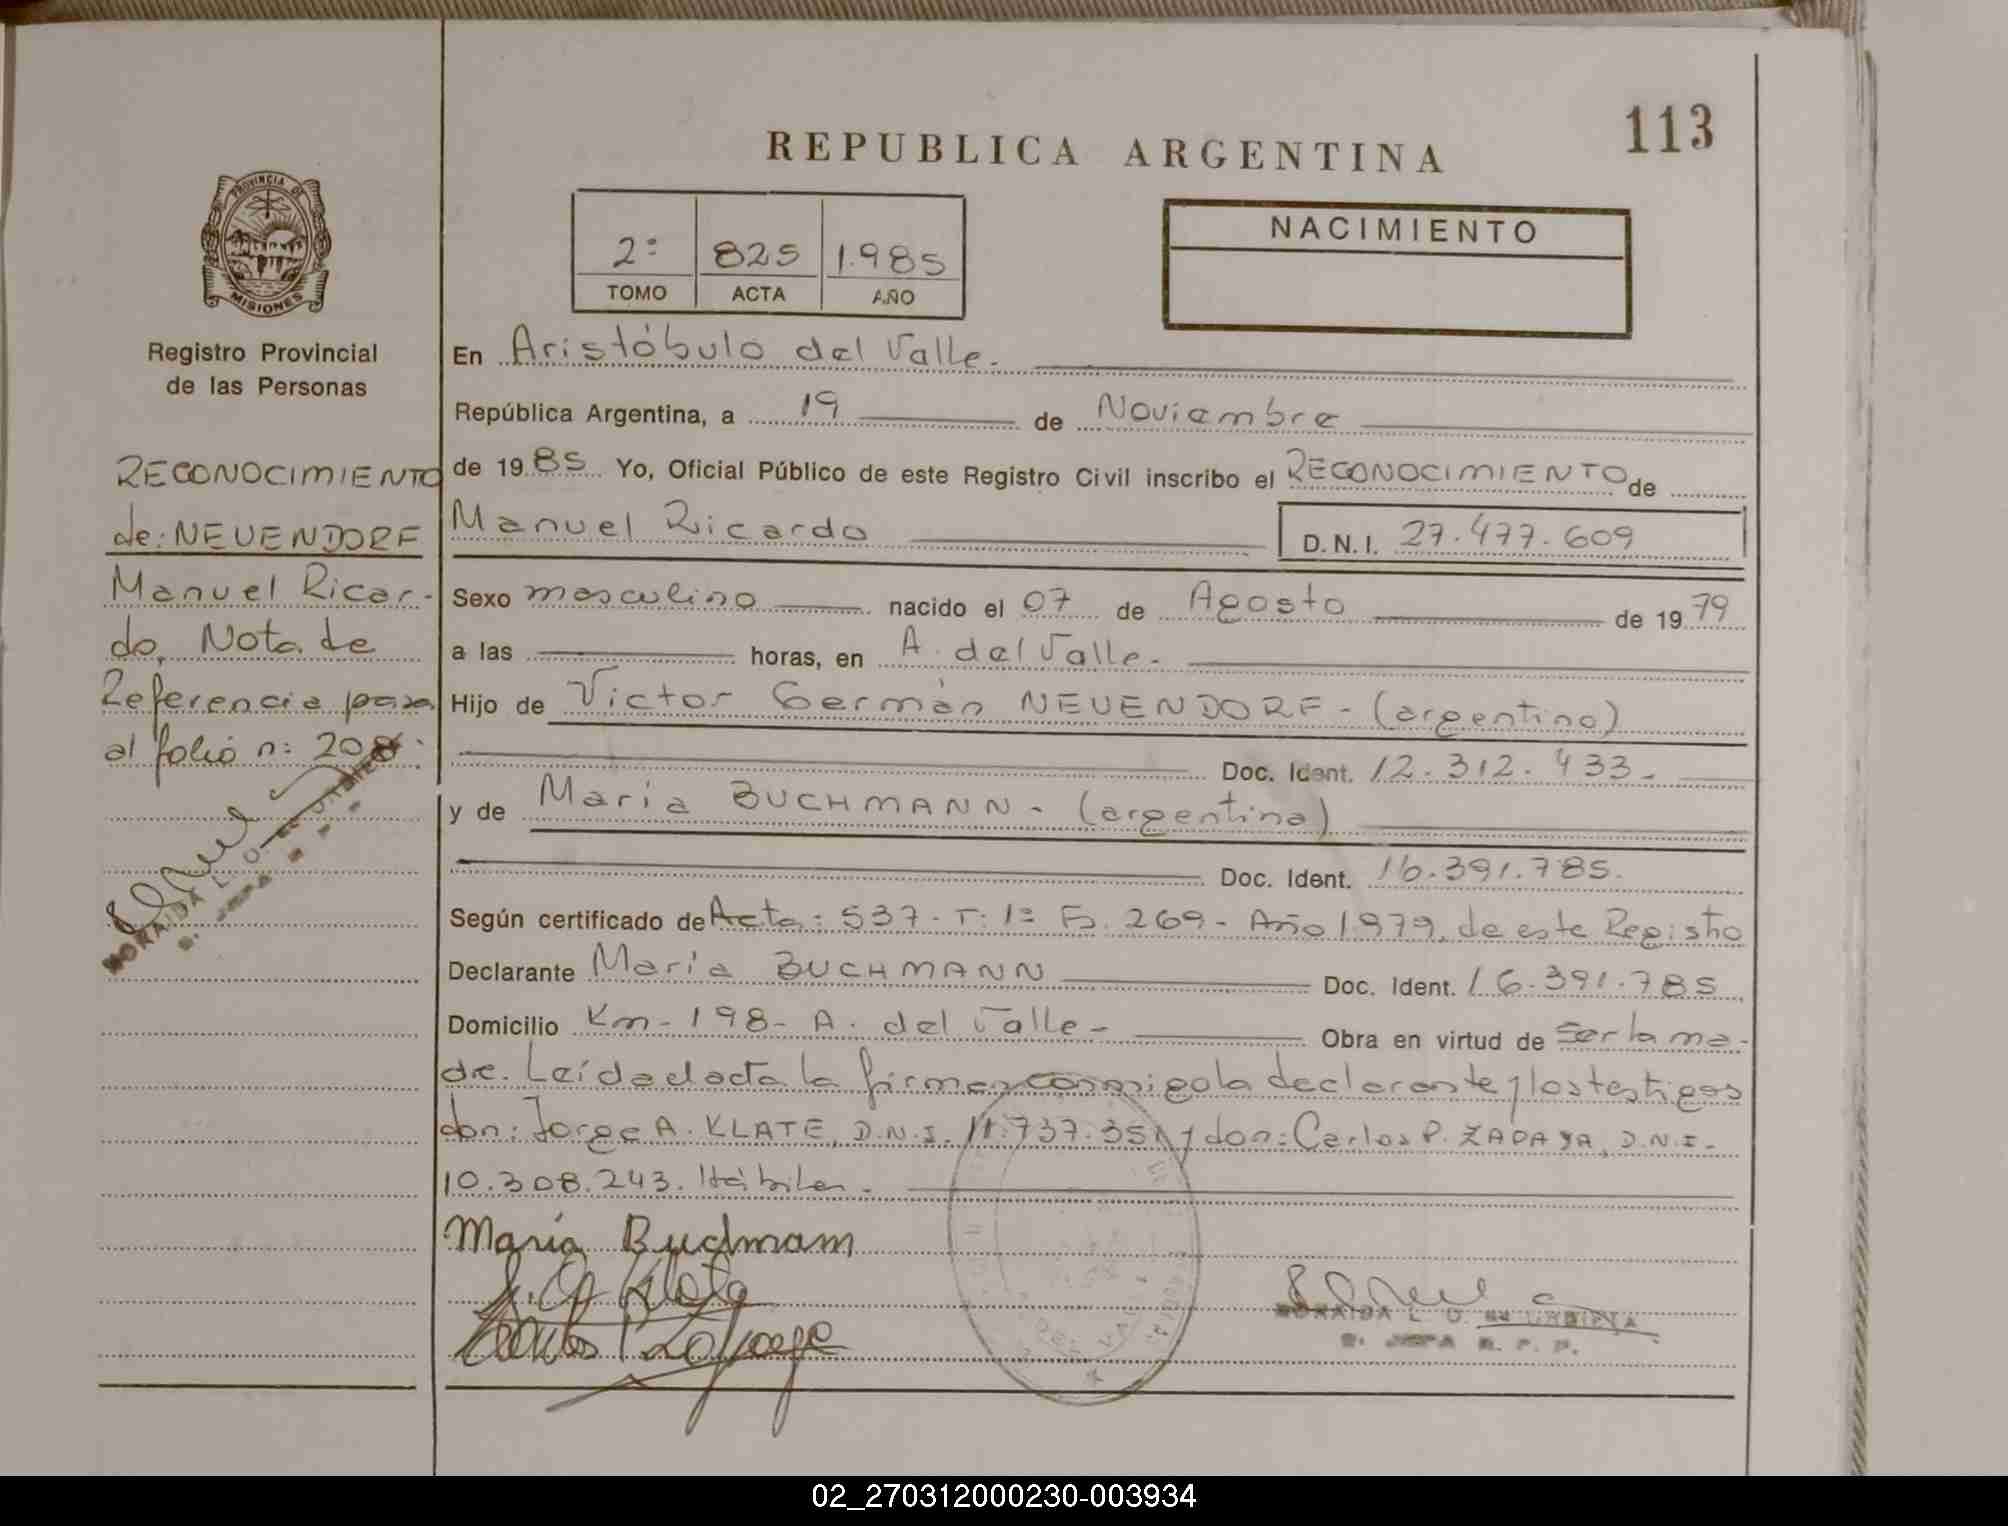 113
REPUBLICA ARGENTINA
PROVINCIA DE
MISIONES
Registro Provincial
de las Personas
2º 825 1.985
TOMO ACTA AÑO
NACIMIENTO
RECONOCIMIENTO
de: NEUENDORF
Manuel Ricar-
do, Nota de
Referencia pasa
al folio nº 208.
En Aristóbulo del Valle.
República Argentina, a 19 de Noviembre
de 1985 Yo, Oficial Público de este Registro Civil inscribo el RECONOCIMIENTO de
Manuel Ricardo D.N.I. 27.477.609
Sexo masculino nacido el 07 de Agosto de 1979
a las horas, en A. del Valle.
Hijo de Victor Germán NEUENDORF - (argentino)
Doc. Ident. 12.312.433.
y de María BUCHMANN - (argentina)
Doc. Ident. 16.391.785.
Según certificado de Acta: 537 - T: 1º Fº. 269 - Año 1.979, de este Registro
Declarante María BUCHMANN Doc. Ident. 16.391.785
Domicilio Km - 198 - A. del Valle - Obra en virtud de ser la ma-
dre. Leída el acta la firman conmigo la declarante y los testigos
don: Jorge A. KLATE, D.N.I. 11.737.351 y don: Carlos P. ZAPAYA, D.N.I.
10.308.243. Hábiles.
María Buchmann
02_270312000230-003934